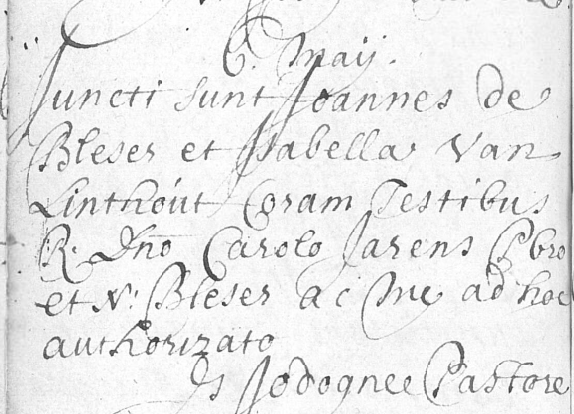 6. maij.
Juncti sunt Joannes de
Bleser et Isabella Van
Linthout Coram Testibus
R. Dno Carolo Jarens Pbro
et N: Bleser ac me ad hoc
authorizato
Jodognee Pastore